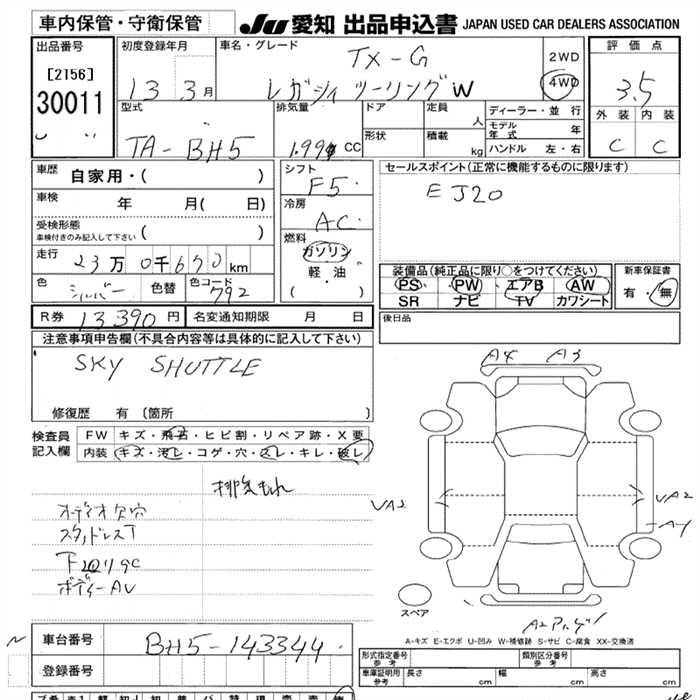 車内保管・守衛保管 JU 愛知 出品申込書 JAPAN USED CAR DEALERS ASSOCIATION
出品番号 初度登録年月 車名・グレード TX-G 2WD 評価点
[2156] 13 3月 レガシィツーリングW 4WD 3.5
30011 型式 排気量 ドア 定員 人 ディーラー・並行 外装 内装
TA-BH5 CC 形状 積載 kg モデル年式 年 C C
ハンドル 左・右
車歴 自家用・( ) シフト F5 セールスポイント(正常に機能するものに限ります)
車検 年 月( 日) 冷房 AC EJ20
受検形態
車検付きのみ記入して下さい ( )
燃料 ガソリン
走行 23万0千670km 軽・油 装備品(純正品に限り○をつけてください) 新車保証書
色 シルバー 色替 色コード 792 ( ) PS PW エアB AW 有・無
SR ナビ TV カワシート
R券 13390円 名変通知期限 月 日 後日品
注意事項申告欄(不具合内容等は具体的に記入して下さい)
SKY SHUTTLE
A4 A3
修復歴 有 (箇所 )
検査員 FW キズ・飛石・ヒビ割・リペア跡・X要
記入欄 内装 キズ・汚レ・コゲ・穴・スレ・キレ・破レ
排気もれ
オーディオ欠穴
スタッドレスT
ボディーAU
UA2 UA2
A4
スペア
A-キズ E-エクボ U-凹み W-補修跡 S-サビ C-腐食 XX-交換済
車台番号 BH5-143344
登録番号
形式指定番号 参考 類別区分番号 参考
車庫証明用 参考 長さ cm 幅 cm 高さ cm